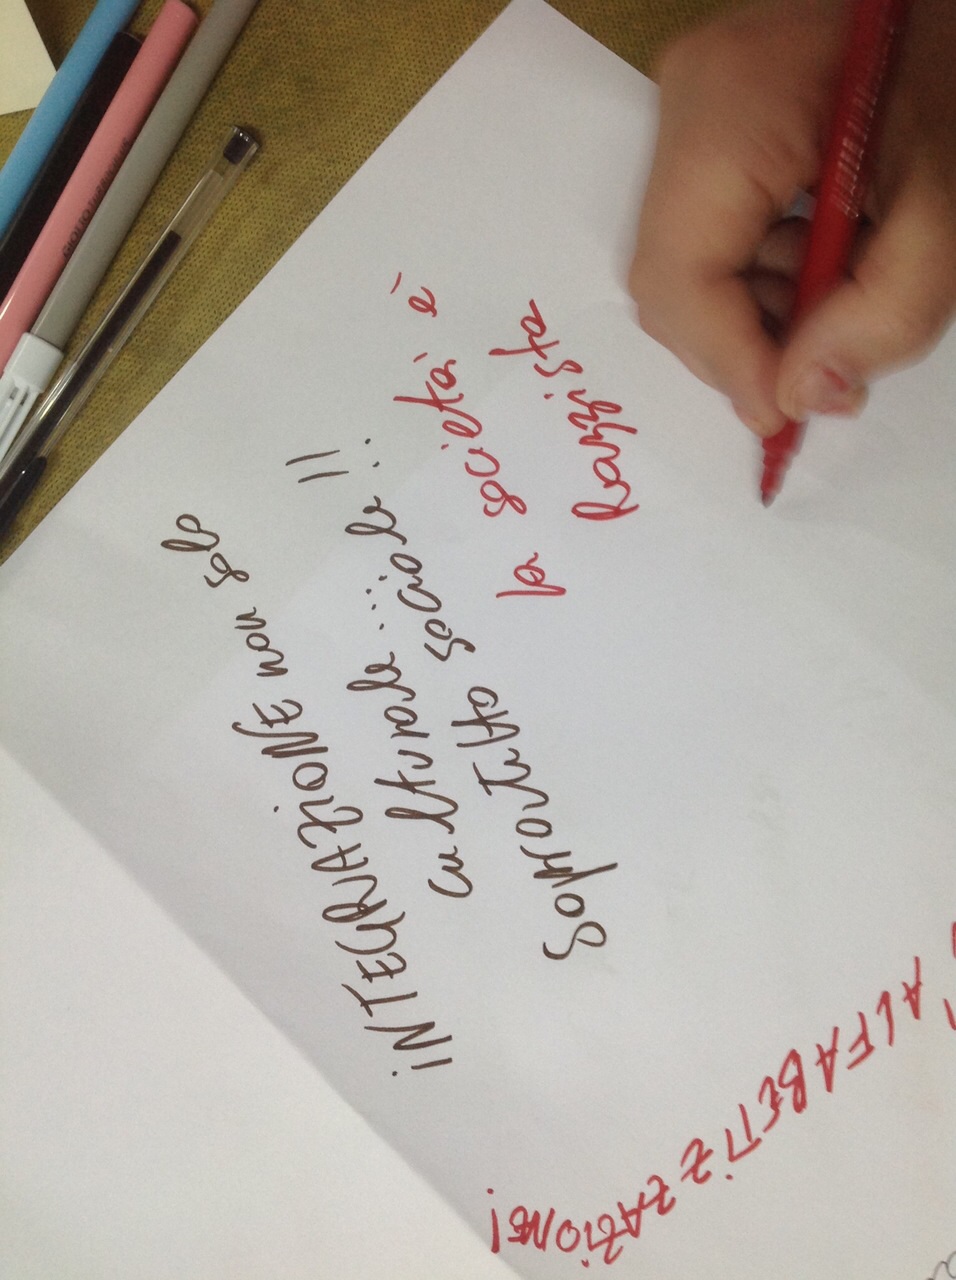 INTEGRAZIONE non solo
culturale ... !!
Soprattutto sociale!..
la società è
Razzista
L'ALFABETIZZAZIONE!
GIOTTO